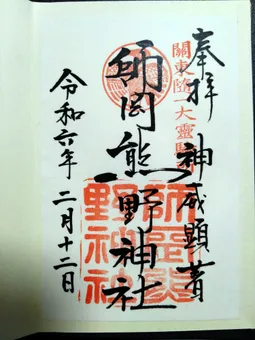 奉拝
神威顕著
關東随一大靈験所
師岡熊野神社
令和六年二月十二日
師岡熊
野神社